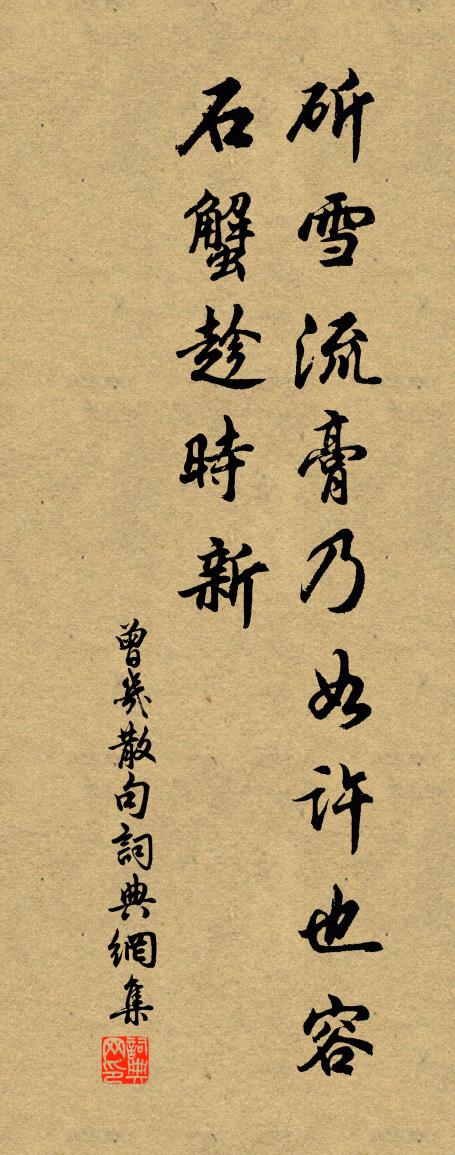 斫雪流膏乃如許也容
石蟹趁時新
曾幾散句詞典網集
詞典网印